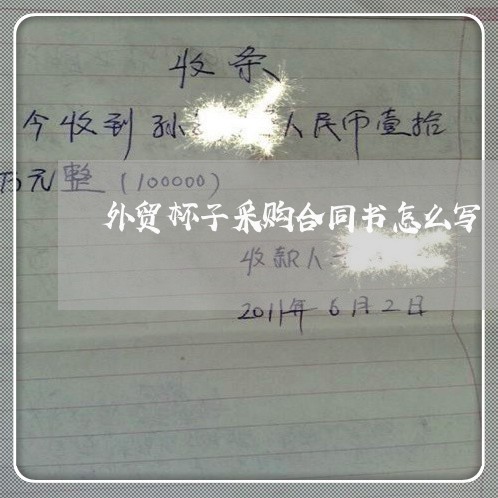 收条
今收到孙 人民币壹拾
万元整（100000）
外贸杯子采购合同书怎么写
收款人：
2011年6月2日